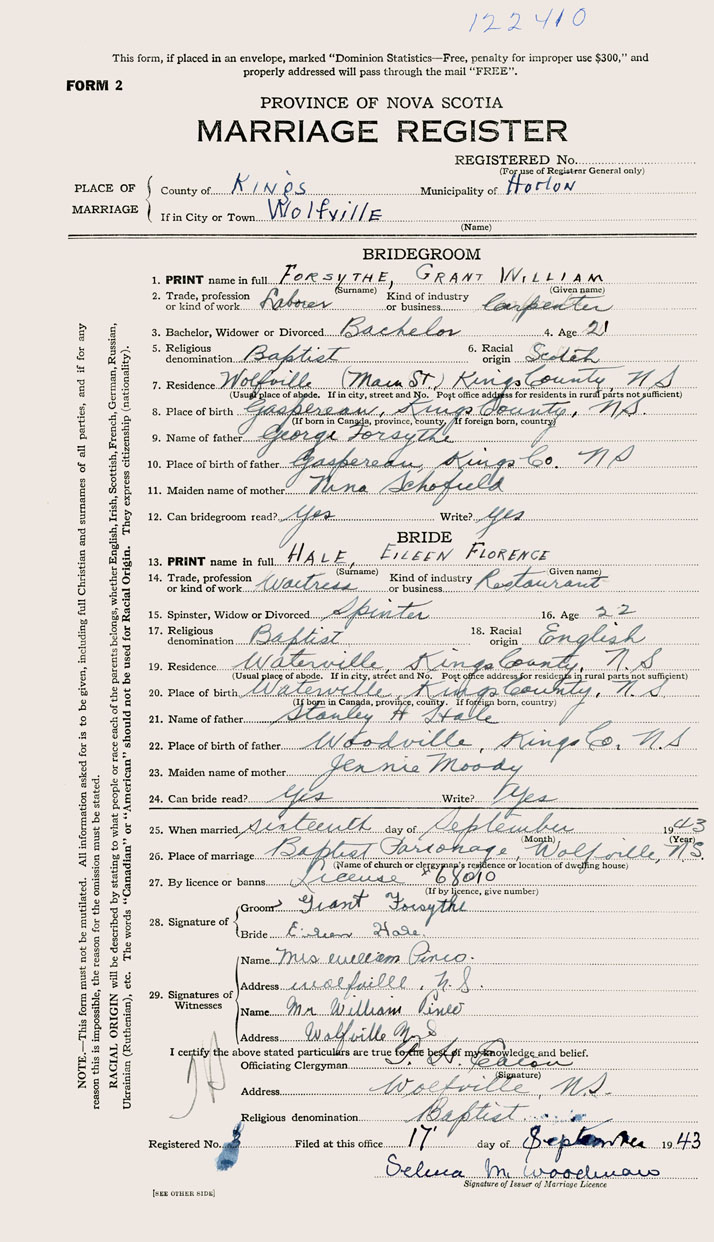 122410
This form, if placed in an envelope, marked "Dominion Statistics—Free, penalty for improper use $300," and
properly addressed will pass through the mail "FREE".
FORM 2
PROVINCE OF NOVA SCOTIA
MARRIAGE REGISTER
REGISTERED No.
(For use of Registrar General only)
PLACE OF MARRIAGE
County of Kings Municipality of Horton
If in City or Town Wolfville
(Name)
BRIDEGROOM
1. PRINT name in full FORSYTHE, GRANT WILLIAM
(Surname) (Given name)
2. Trade, profession or kind of work Laborer Kind of industry or business Carpenter
3. Bachelor, Widower or Divorced Bachelor 4. Age 21
5. Religious denomination Baptist 6. Racial origin Scotch
7. Residence Wolfville (Main St.) Kings County, N S
(Usual place of abode. If in city, street and No. Post office address for residents in rural parts not sufficient)
8. Place of birth Gaspereau, Kings County, N.S.
(If born in Canada, province, county. If foreign born, country)
9. Name of father George Forsythe
10. Place of birth of father Gaspereau, Kings Co. N S
11. Maiden name of mother Nina Schofield
12. Can bridegroom read? Yes Write? Yes
BRIDE
13. PRINT name in full HALE, EILEEN FLORENCE
(Surname) (Given name)
14. Trade, profession or kind of work Waitress Kind of industry or business Restaurant
15. Spinster, Widow or Divorced Spinter 16. Age 22
17. Religious denomination Baptist 18. Racial origin English
19. Residence Waterville, Kings County, N. S
(Usual place of abode. If in city, street and No. Post office address for residents in rural parts not sufficient)
20. Place of birth Waterville, Kings County, N. S
(If born in Canada, province, county. If foreign born, country)
21. Name of father Stanley H Hale
22. Place of birth of father Woodville, Kings Co. N.S
23. Maiden name of mother Jennie Moody
24. Can bride read? Yes Write? Yes
25. When married sixteenth day of September 1943
(Month) (Year)
26. Place of marriage Baptist Parsonage, Wolfville, N.S.
(Name of church or clergyman's residence or location of dwelling house)
27. By licence or banns License #68010
(If by licence, give number)
28. Signature of
Groom Grant Forsythe
Bride Eileen Hale.
29. Signatures of Witnesses
Name Mrs William Pineo.
Address Wolfville, N.S.
Name Mr William Pineo
Address Wolfville N S
I certify the above stated particulars are true to the best of my knowledge and belief.
Officiating Clergyman H. Eaton
(Signature)
Address Wolfville, N.S.
Religious denomination Baptist
Registered No. 3 Filed at this office 17 day of September 1943
Selma M. Woodman
Signature of Issuer of Marriage Licence
[SEE OTHER SIDE]
NOTE.—This form must not be mutilated. All information asked for is to be given, including full Christian and surnames of all parties, and if for any
reason this is impossible, the reason for the omission must be stated.
RACIAL ORIGIN will be described by stating to what people or race each of the parents belongs, whether English, Irish, Scottish, French, German, Russian,
Ukrainian (Ruthenian), etc. The words "Canadian" or "American" should not be used for Racial Origin. They express citizenship (nationality).